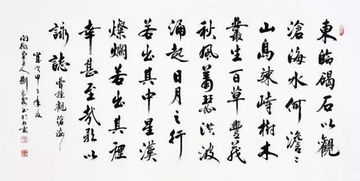 東臨碣石以觀
滄海水何澹〻
山島竦峙樹木
叢生百草豐茂
秋風蕭瑟洪波
涌起日月之行
若出其中星漢
燦爛若出其裡
幸甚至哉歌以
詠誌 曹操觀滄海